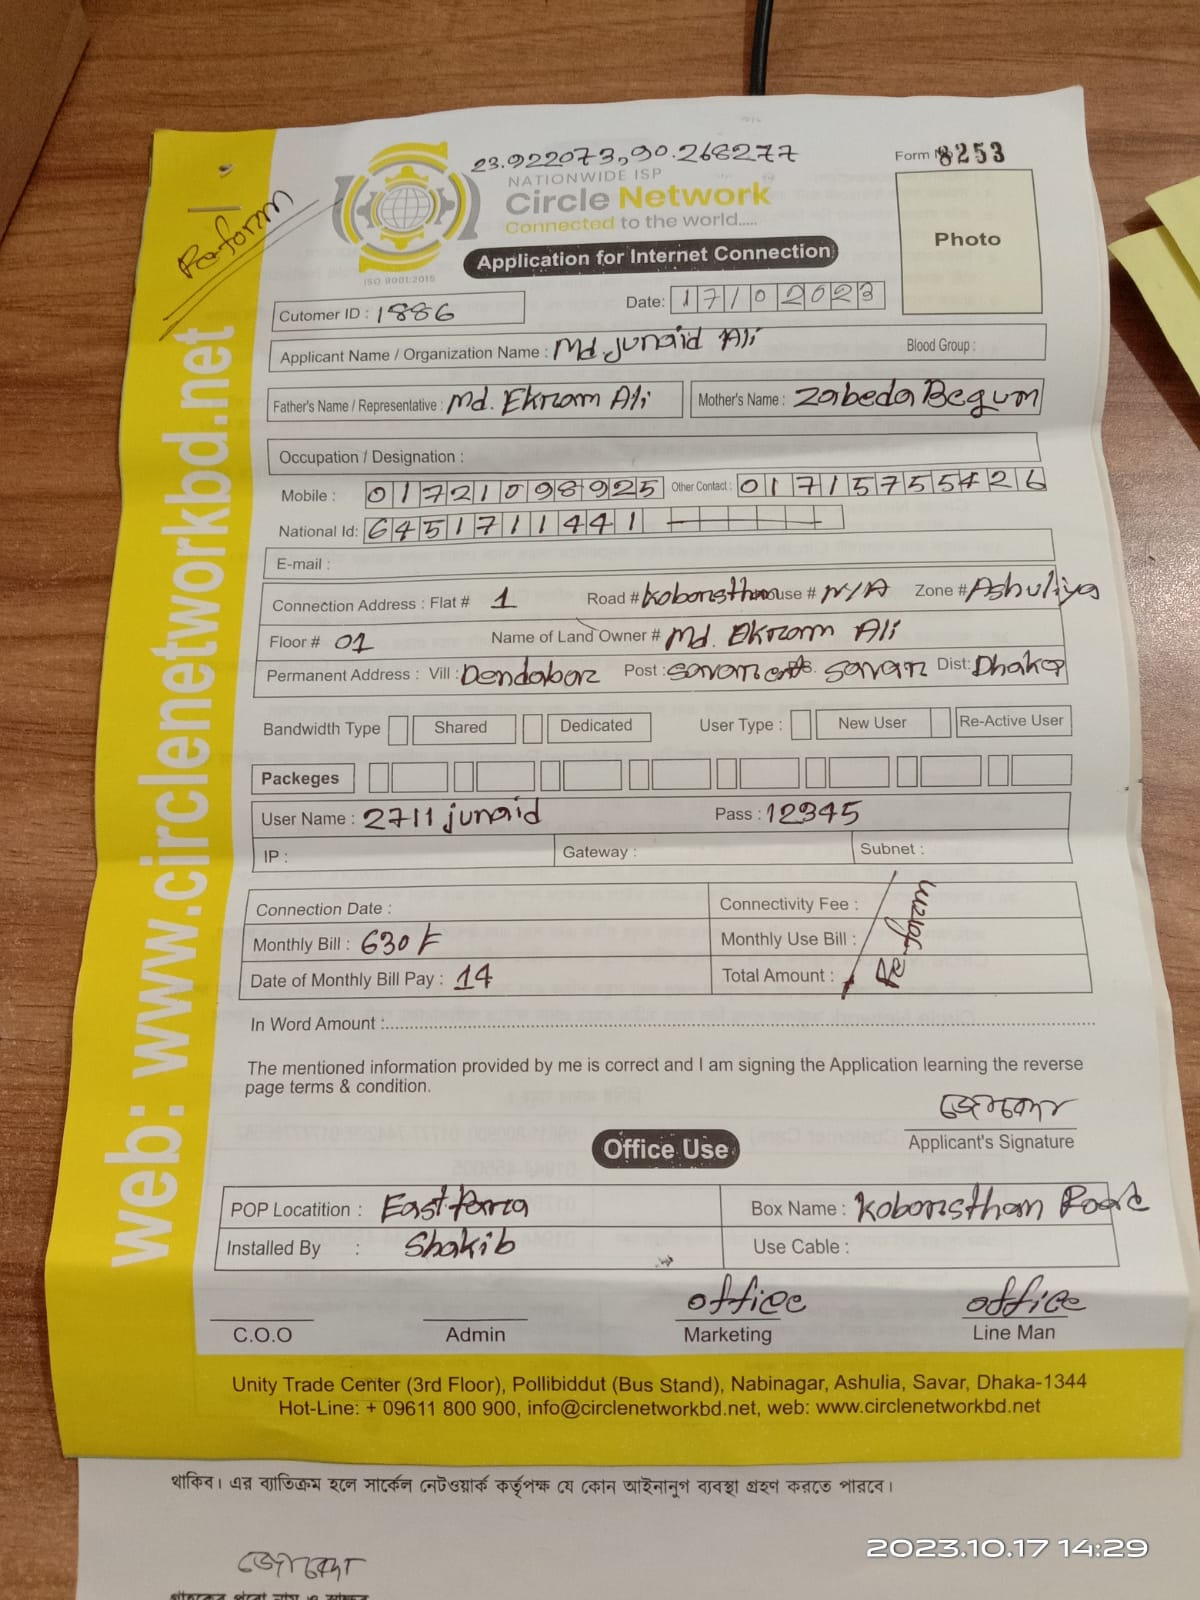 23.922073,90.268277
Form № 8253
NATIONWIDE ISP
Circle Network
Connected to the world.....
ISO 9001:2015
Re-form
Application for Internet Connection
Photo
Cutomer ID : 1886
Date: 17/02023
Applicant Name / Organization Name : Md. Junaid Ali
Blood Group :
Father's Name / Representative : Md. Ekram Ali
Mother's Name : Zabeda Begum
Occupation / Designation :
Mobile : 01721098925 Other Contact : 01715755426
National Id: 6451711441
E-mail :
Connection Address : Flat # 1 Road # Koborsthan House # N/A Zone # Ashuliya
Floor # 01 Name of Land Owner # Md. Ekram Ali
Permanent Address : Vill : Dendabor Post : Savar cant P.S. Savar Dist: Dhaka
Bandwidth Type Shared Dedicated User Type : New User Re-Active User
Packeges
User Name : 2711junaid Pass : 12345
IP : Gateway : Subnet :
Connection Date : Connectivity Fee :
Monthly Bill : 630 Monthly Use Bill :
Date of Monthly Bill Pay : 14 Total Amount :
In Word Amount :
The mentioned information provided by me is correct and I am signing the Application learning the reverse
page terms & condition.
Applicant's Signature
Office Use
POP Locatition : East
Box Name : Koborsthan Road
Installed By : Shakib
Use Cable :
office office
C.O.O Admin Marketing Line Man
Unity Trade Center (3rd Floor), Pollibiddut (Bus Stand), Nabinagar, Ashulia, Savar, Dhaka-1344
Hot-Line: + 09611 800 900, info@circlenetworkbd.net, web: www.circlenetworkbd.net
web: www.circlenetworkbd.net
থাকিব। এর ব্যতিক্রম হলে সার্কেল নেটওয়ার্ক কর্তৃপক্ষ যে কোন আইনানুগ ব্যবস্থা গ্রহণ করতে পারবে।
2023.10.17 14:29